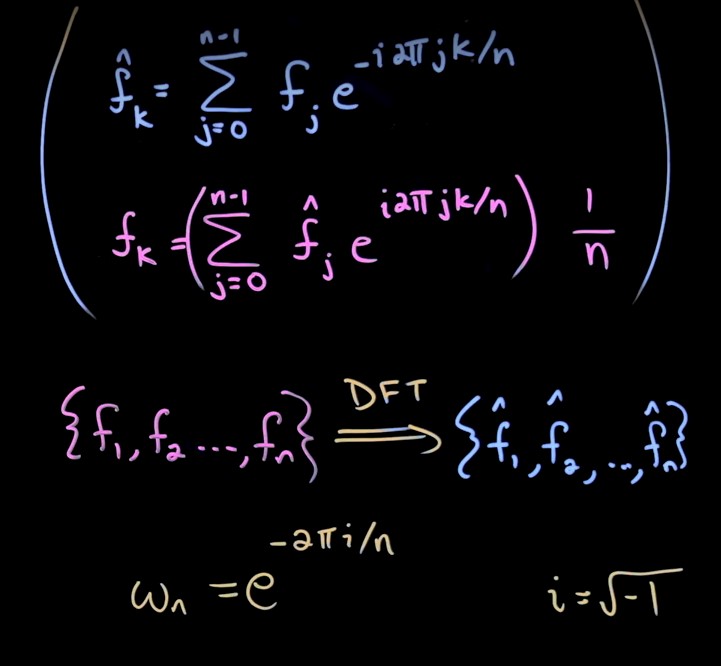 f̂ₖ = ∑ⱼ₌₀ⁿ⁻¹ fⱼ e^(-i2πjk/n)
fₖ = (∑ⱼ₌₀ⁿ⁻¹ f̂ⱼ e^(i2πjk/n)) 1/n
{f₁, f₂ ..., fₙ} DFT ⟹ {f̂₁, f̂₂, ..., f̂ₙ}
ωₙ = e^(-2πi/n) i = √-1